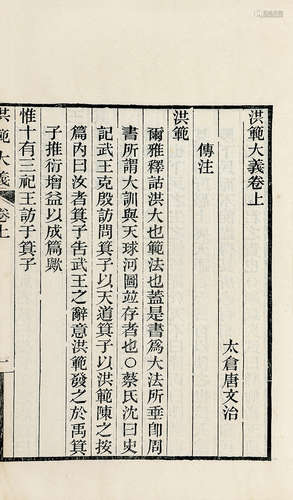 洪範大義卷上
太倉唐文治
傳注
洪範
爾雅釋詁洪大也範法也蓋是書為大法所垂卽周
書所謂大訓與天球河圖竝存者也〇蔡氏沈曰史
記武王克殷訪問箕子以天道箕子以洪範陳之按
篇內曰汝者箕子告武王之辭意洪範發之於禹箕
子推衍增益以成篇歟
惟十有三祀王訪于箕子
洪範大義
卷上
一